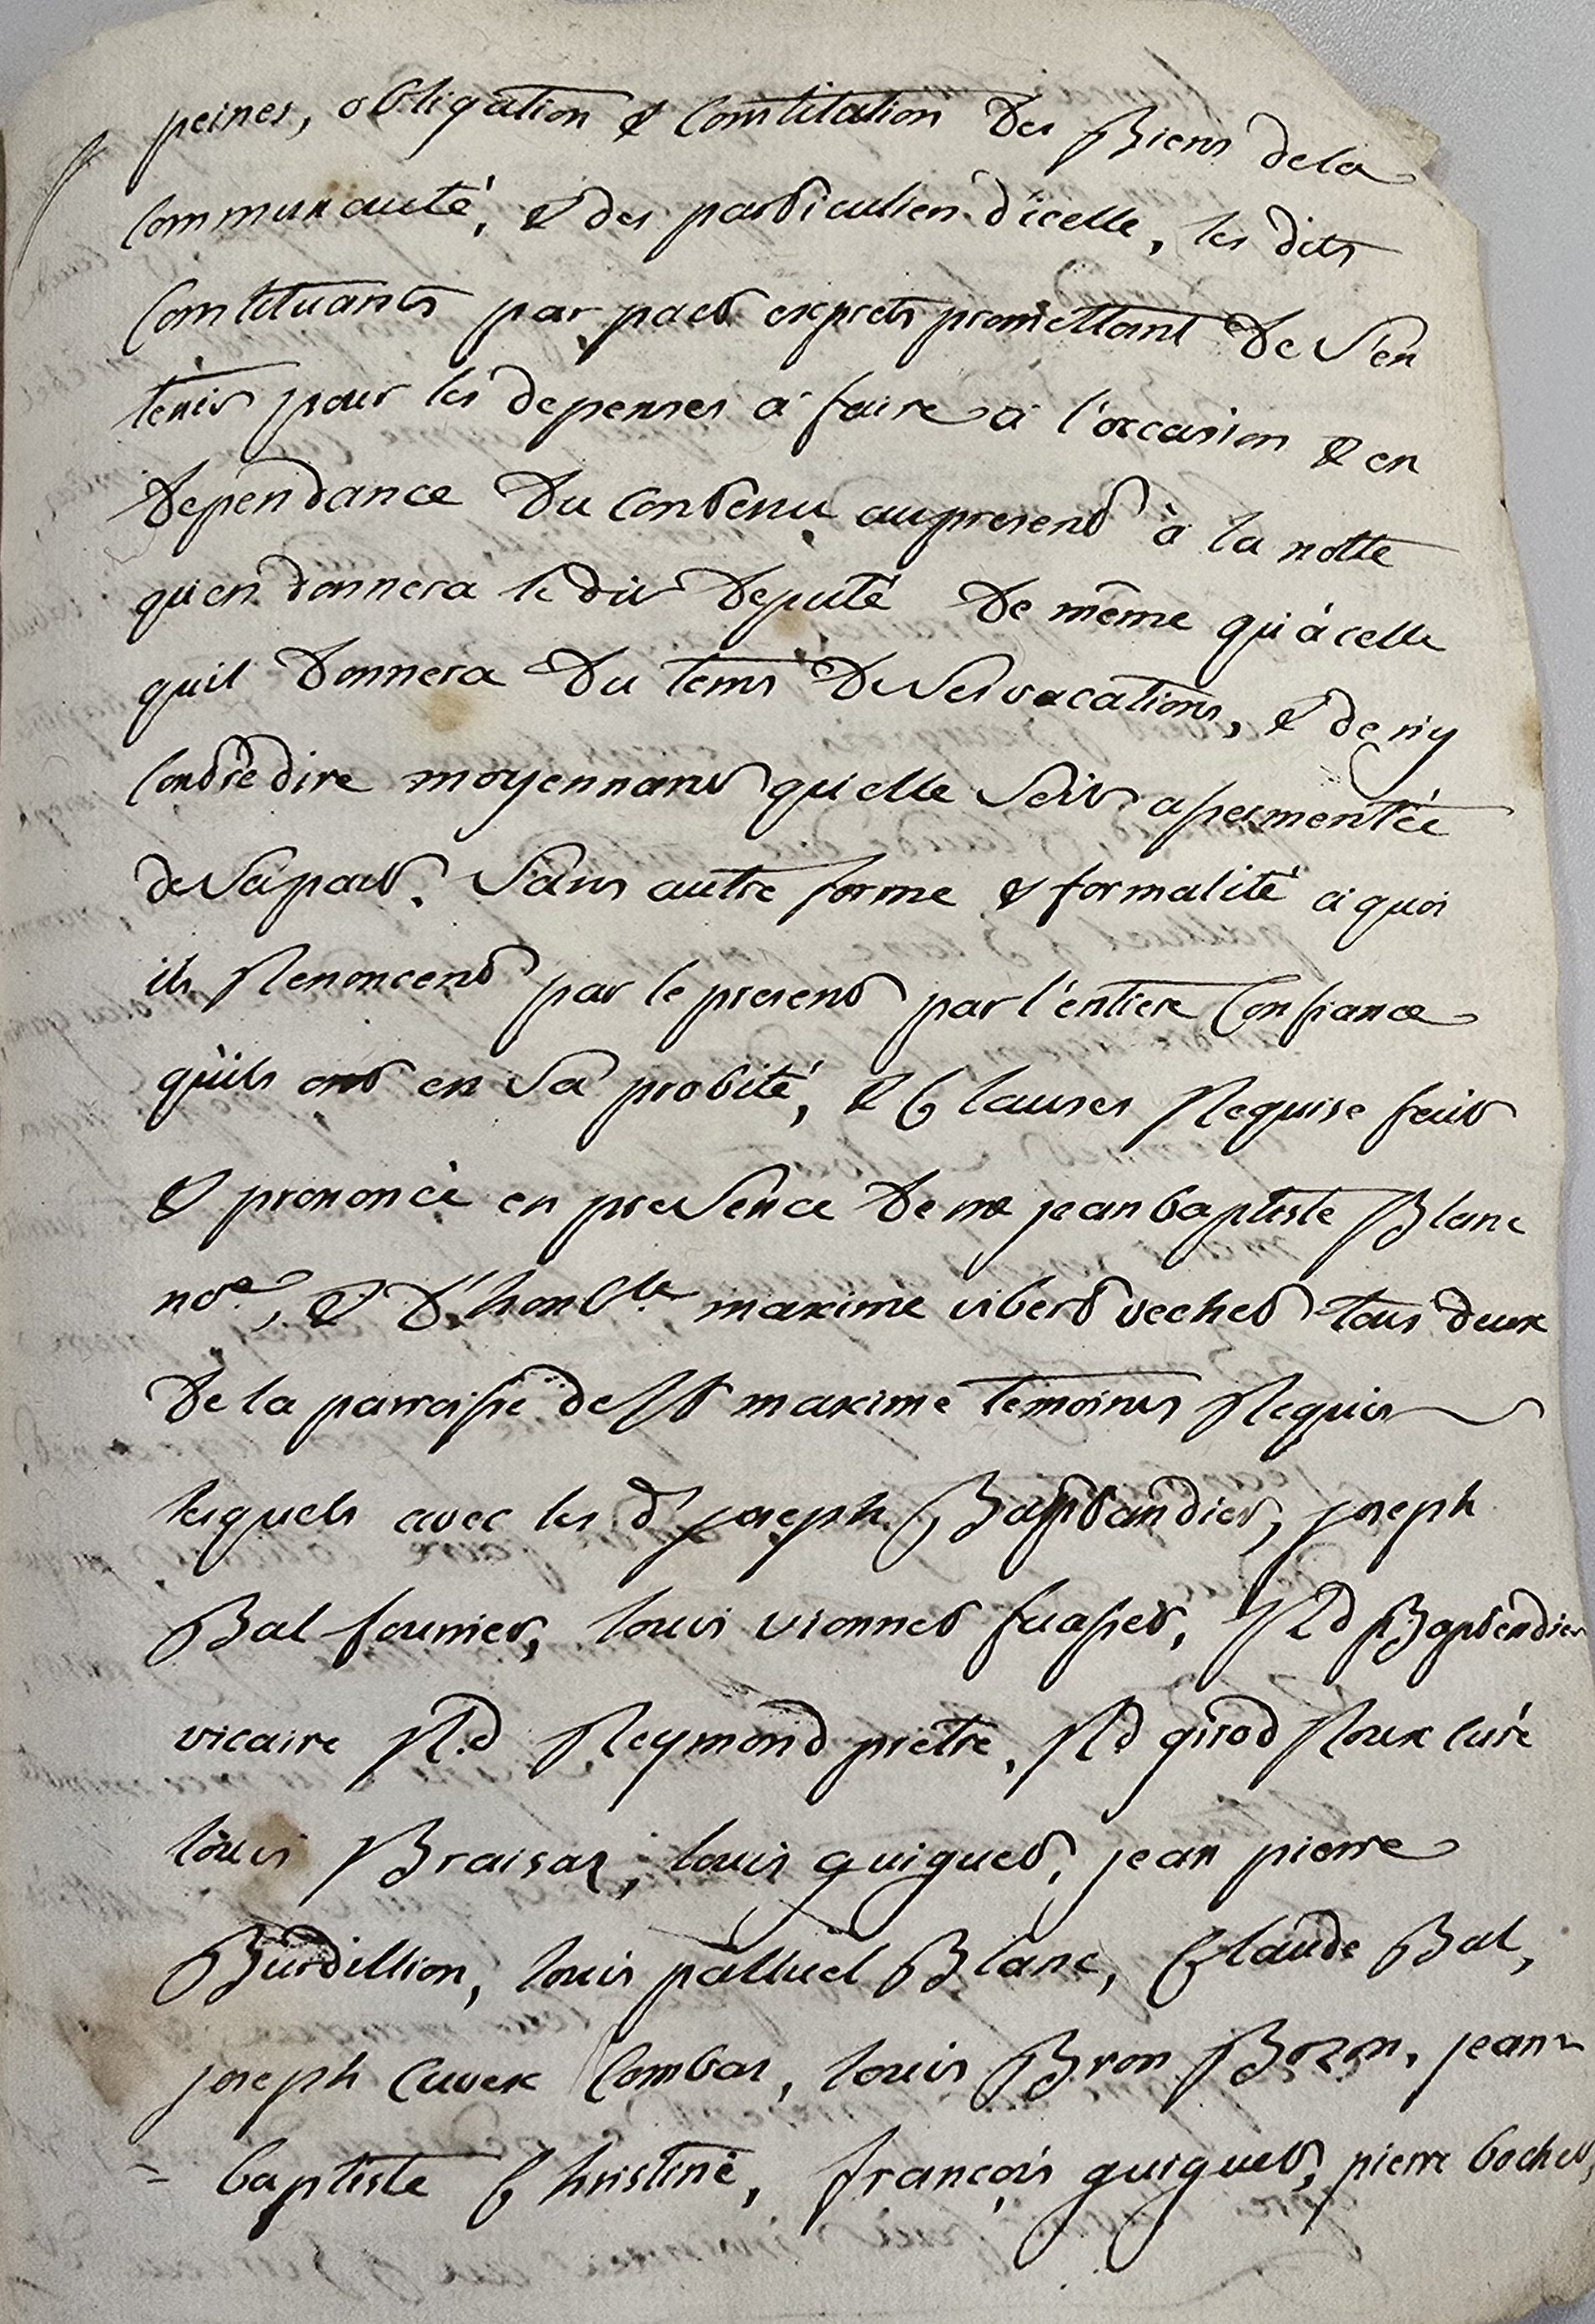 peines, obligation & Constitution des Biens dela
Communauté, & des particulien d'icelle, les dits
Constituants par pact exprets promettant de s'en
tenir pour les depenses a faire a l'occasion & en
dependance du Contenu au present à la notte
qu'en donnera le dit deputé de même qu'à celle
quil donnera du tems de ses vacations, & de n'y
Contredire moyennant qu'elle soit assermentée
de sa part. Sans autre forme & formalité a quoi
ils Renoncent par le present par l'entiere Confiance
qu'ils ont en sa probité, & Clauses Requise fait
& prononcé en presence de me jean baptiste Blanc
not.e, & d'honble maxime vibert vechet tous deux
de la parroisse de St maxime temoins Requis
lesquels avec les d. joseph Baptandier, joseph
Bal fournier, louis vionnet fuasset, Rd Baptendier
vicaire R.d Reymond prêtre, Rd girod Roux Curé
louis Braisaz, louis guiguet, jean pierre
Burdillion, louis palluel Blanc, Claude Bal,
joseph Cuvex Combaz, louis Bron Bozon, jean
= baptiste Christine, françois guiguet, pierre bochet,